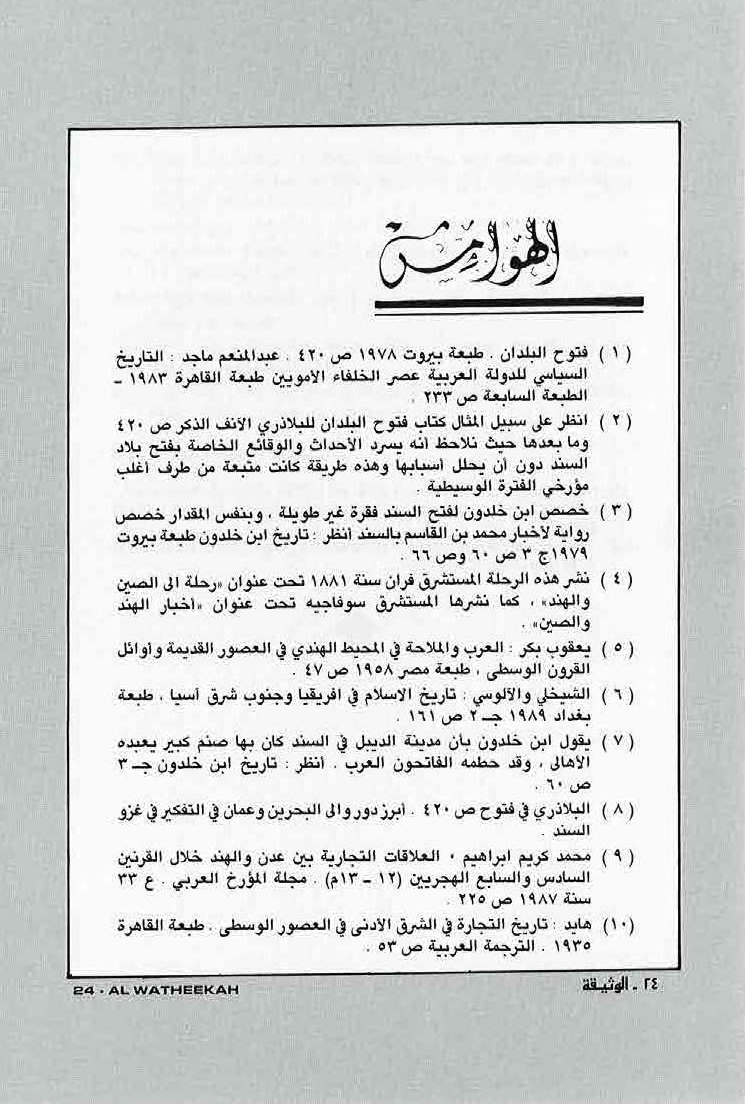 الهوامش
( ١ ) فتوح البلدان . طبعة بيروت ١٩٧٨ ص ٤٢٠ . عبدالمنعم ماجد : التاريخ
السياسي للدولة العربية عصر الخلفاء الأمويين طبعة القاهرة ١٩٨٣ –
الطبعة السابعة ص ٢٣٣ .
( ٢ ) انظر على سبيل المثال كتاب فتوح البلدان للبلاذري الآنف الذكر ص ٤٢٠
وما بعدها حيث نلاحظ أنه يسرد الأحداث والوقائع الخاصة بفتح بلاد
السند دون أن يحلل أسبابها وهذه طريقة كانت متبعة من طرف أغلب
مؤرخي الفترة الوسيطية .
( ٣ ) خصص ابن خلدون لفتح السند فقرة غير طويلة ، وبنفس المقدار خصص
رواية لأخبار محمد بن القاسم بالسند أنظر : تاريخ ابن خلدون طبعة بيروت
١٩٧٩ ج ٣ ص ٦٠ وص ٦٦ .
( ٤ ) نشر هذه الرحلة المستشرق فران سنة ١٨٨١ تحت عنوان «رحلة الى الصين
والهند» ، كما نشرها المستشرق سوفاجيه تحت عنوان «أخبار الهند
والصين» .
( ٥ ) يعقوب بكر : العرب والملاحة في المحيط الهندي في العصور القديمة وأوائل
القرون الوسطى ، طبعة مصر ١٩٥٨ ص ٤٧ .
( ٦ ) الشيخلي والآلوسي : تاريخ الاسلام في افريقيا وجنوب شرق أسيا ، طبعة
بغداد ١٩٨٩ جـ ٢ ص ١٦١ .
( ٧ ) يقول ابن خلدون بأن مدينة الديبل في السند كان بها صنم كبير يعبده
الأهالى ، وقد حطمه الفاتحون العرب . أنظر : تاريخ ابن خلدون جـ ٣
ص ٦٠ .
( ٨ ) البلاذري في فتوح ص ٤٢٠ . أبرز دور والى البحرين وعمان في التفكير في غزو
السند .
( ٩ ) محمد كريم ابراهيم ، العلاقات التجارية بين عدن والهند خلال القرنين
السادس والسابع الهجريين (١٢ – ١٣م) . مجلة المؤرخ العربي . ع ٣٣
سنة ١٩٨٧ ص ٢٢٥ .
(١٠) هايد : تاريخ التجارة في الشرق الأدنى في العصور الوسطى . طبعة القاهرة
١٩٣٥ . الترجمة العربية ص ٥٣ .
24 • AL WATHEEKAH
٢٤ – الوثيقة